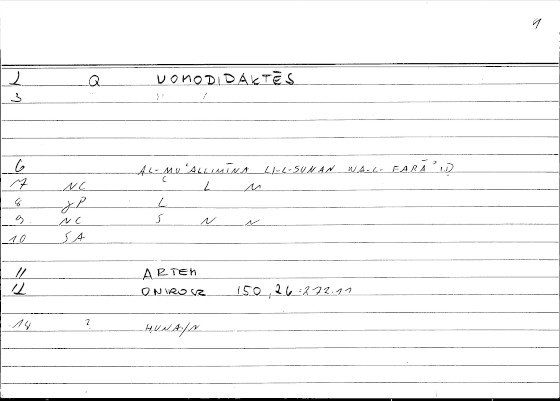 9
2 Q NOMODIDAKTĒS
3
6 AL-MUʿALLIMĪNA LI-L-SUNAN WA-L-FARĀʾIḌ
7 NC L M
8 JP L
9 NC S N N
10 SA
11 ARTEM
12 ONIROCR 150,26=272.11
14 ? HUNAIN